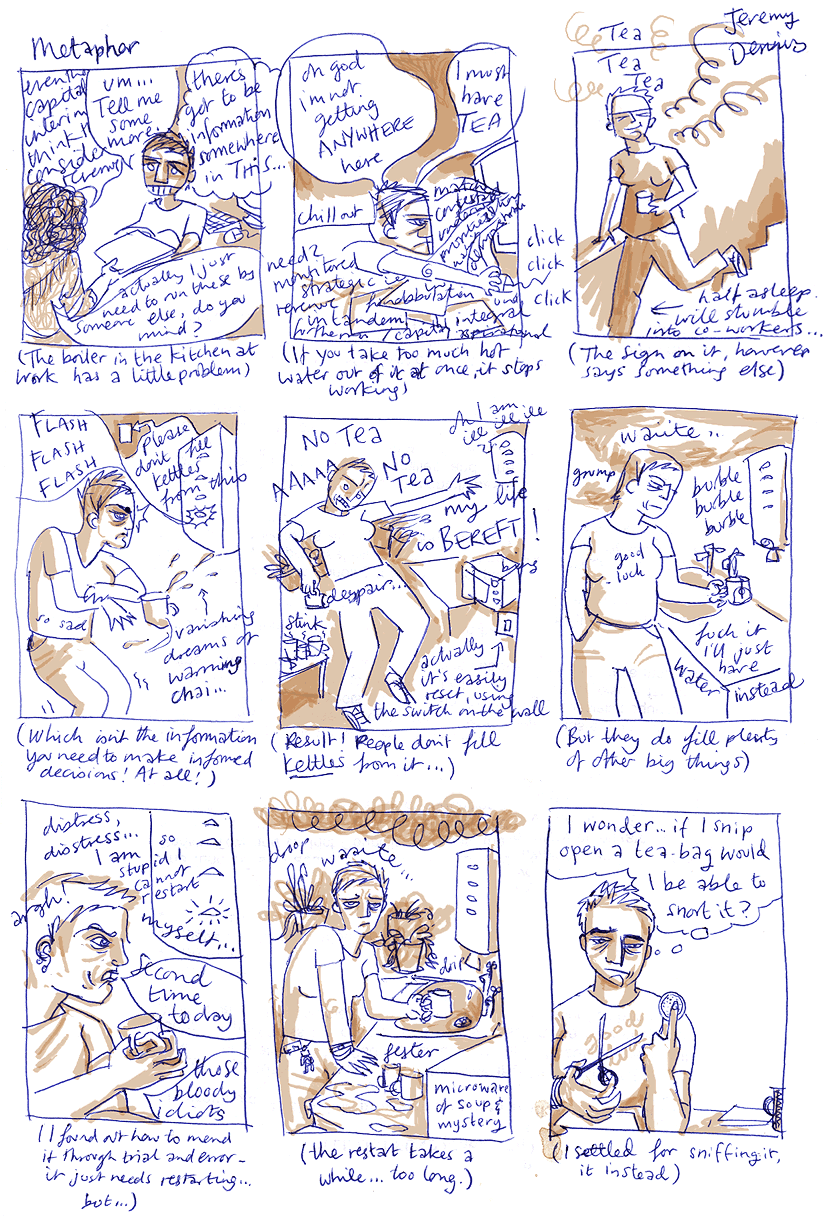 Metaphor
Jeremy
Dennis
capital
interim
think it
um...
Tell me
some
more...
there's
got to be
information
somewhere
in THIS...
actually I just
need to run these by
someone else, do you
mind?
(The boiler in the kitchen at
work has a little problem)
oh god
im not
getting
ANYWHERE
here
I must
have
TEA
chill out
click
click
click
need?
monitored
strategic ie
revenue
in tandem
capital integral
(If you take too much hot
water out of it at once, it stops
working)
Tea
Tea
Tea
half asleep.
will stumble
into co-workers...
(The sign on it, however
says something else)
FLASH
FLASH
FLASH
please
don't fill
kettles
from this
so sad
vanishing
dreams of
warming
chai...
(Which isn't the information
you need to make informed
decisions! At all!)
NO TEA
AAAAA
NO
TEA
my life
is BEREFT!
oh I am
ill ill ill
despair...
stink
actually
it's easily
reset, using
the switch on the wall
(Result! People don't fill
kettles from it...)
waiite...
grump
burble
burble
burble
good
luck
fuck it
I'll just
have
water instead
(But they do fill plenty
of other big things)
distress,
disstress...
I am
so
stupid I
cannot
restart
myself...
argh!
second
time
today
those
bloody
idiots
(I found out how to mend
it through trial and error-
it just needs restarting...
but...)
droop
waiite...
drip
fester
microwave
of soup &
mystery
(the restart takes a
while... too long.)
I wonder... if I snip
open a tea-bag would
I be able to
snort it?
good
(I settled for sniffing it,
it instead)